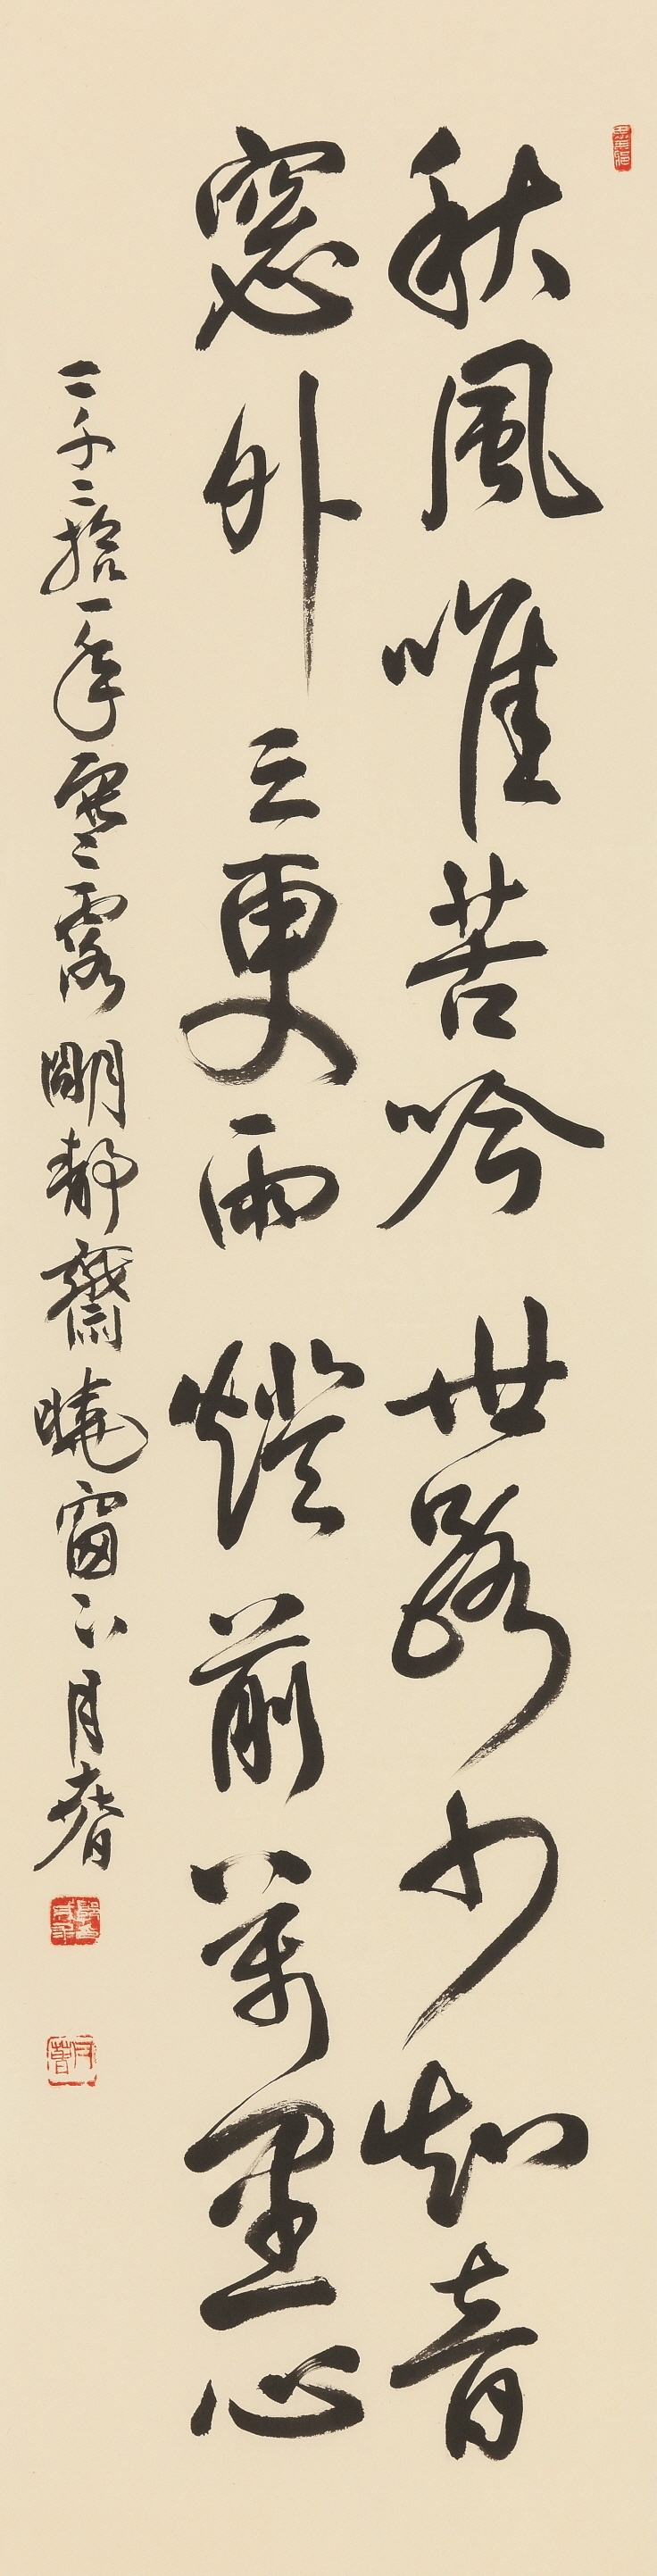 秋風唯苦吟世路少知音
窓外三更雨燈前萬里心
二千二拾一年寒露明静齋曉窗下月